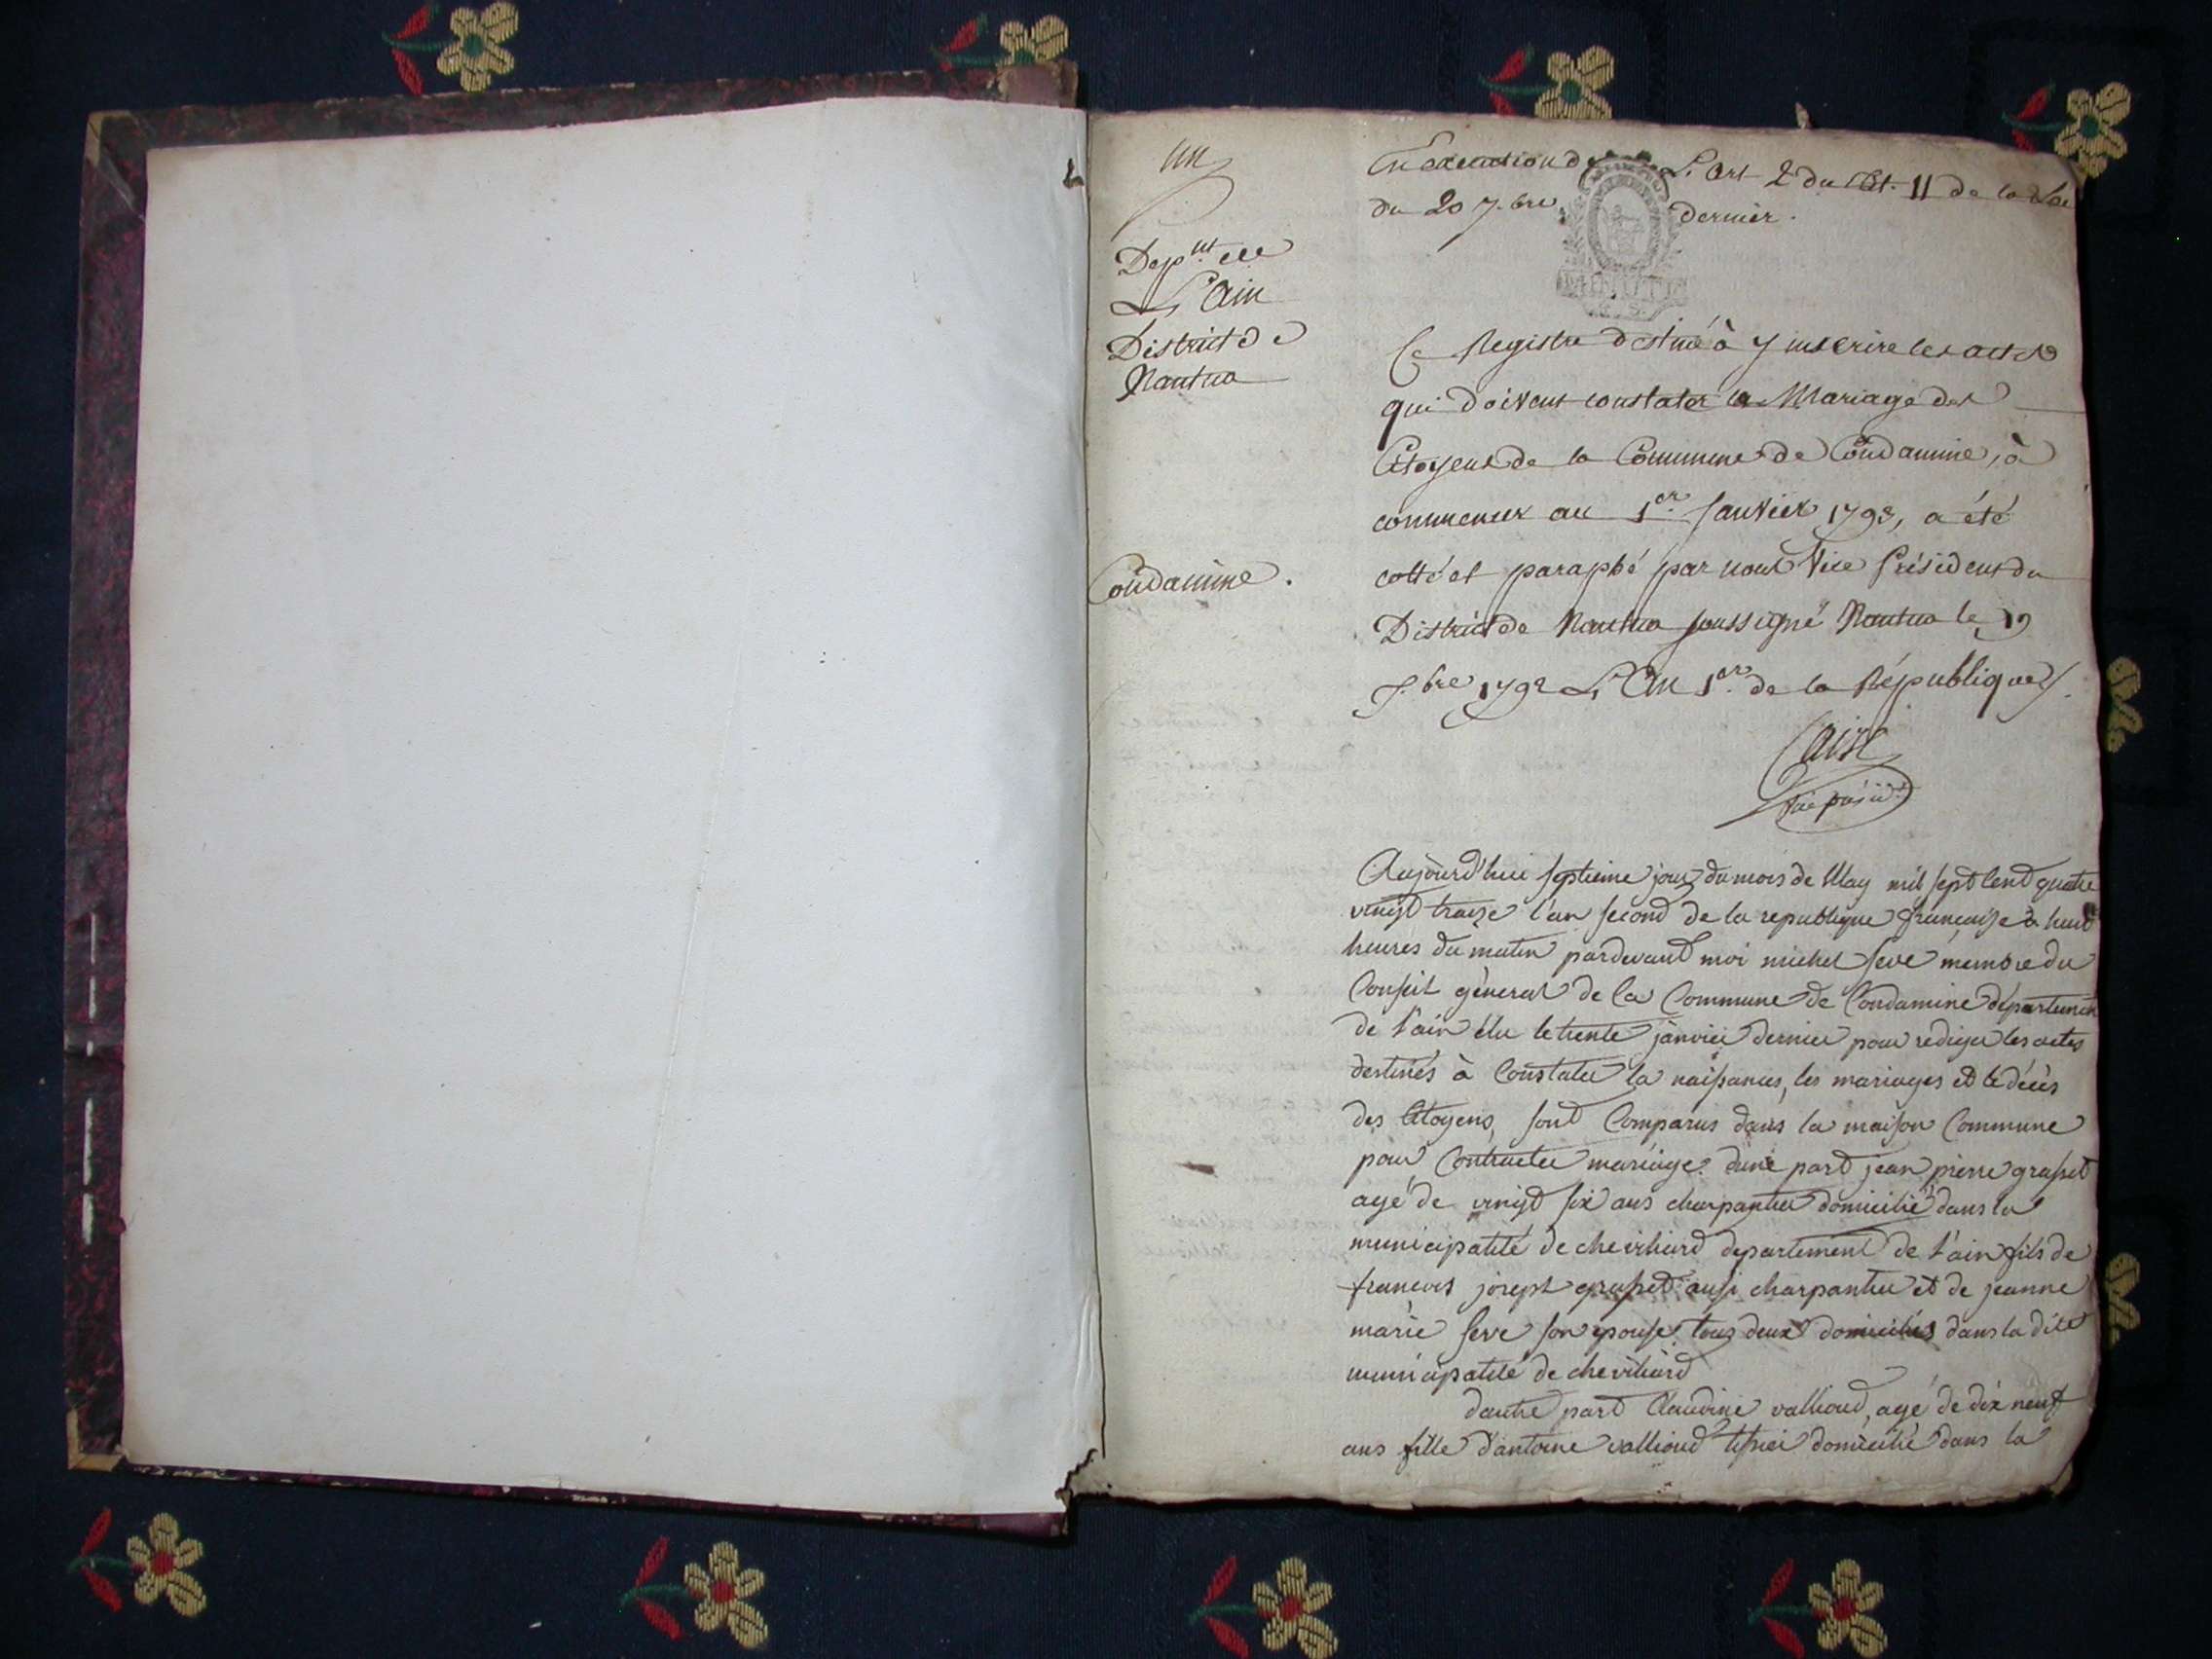 un
Dep.nt de
L'Ain
District de
Nantua
Condamine.
En execution de L'Art 2 du tit. 11 de la Loi
du 20 7.bre dernier.
Ce Registre destiné à y inscrire les actes
qui doivent constater le Mariage des
Citoyens de la Commune de Condamine, à
commencer au 1.er Janvier 1793, a été
cotté et paraphé par nous Vice Président du
District de Nantua soussigné Nantua le 19
bre 1792 L'An 1.er de la République
vice présid.t
Aujourd'hui septieme jour du mois de May mil sept Cent quatre
vingt traize l'an second de la republique françaize à huit
heures du matin pardevant moi michel seve membre du
Conseil géneral de la Commune de Condamine départument
de l'ain élu le trente janvier dernier pour rediger les actes
destinés à Constater la naissances, les mariages et le décès
des Citoyens, sont Comparus dans la maison Commune
pour Contracter mariage. dune part jean pierre grasset
agé de vingt six ans charpantier domicilié dans la
municipalité de chevilliard departement de l'ain fils de
francois joseph grasset aussi charpantier et de jeanne
marie seve son épouse tous deux domiciliés dans la dite
municipalité de cheviliard
dautre part Claudine vallioud, agé de dix neuf
ans fille d'antoine vallioud tissier domicilié dans la